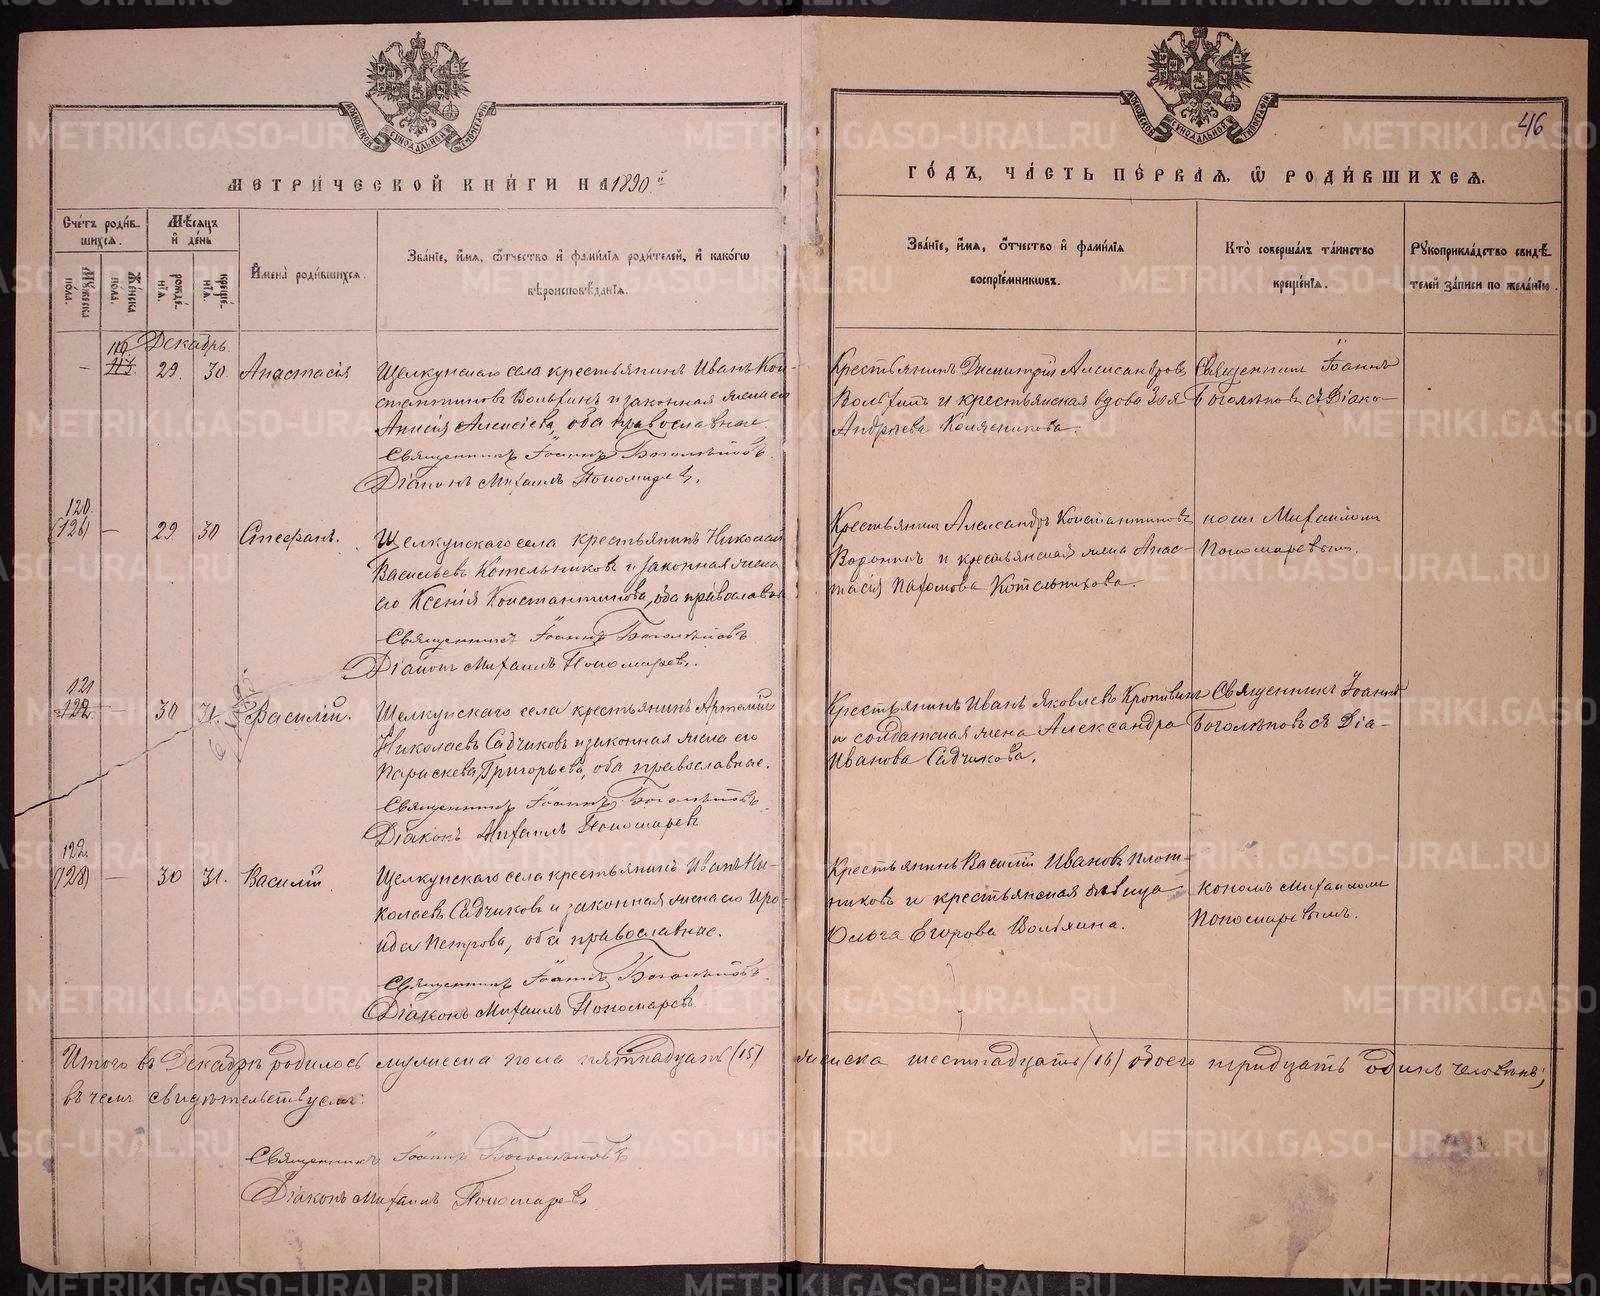 МЕТРИ́ЧЕСКОЙ КНИ́ГИ НА 1890.й
ГО́ДЪ, ЧА́СТЬ ПЕ́РВАѦ, Ѡ҆ РОДИ́ВШИХСѦ.
46
Сче́тъ роди́в-
шихсѧ.
Мꙋ́жеска по́ла.
Же́нска по́ла.
Мѣ́сѧцъ и҆ де́нь
рожде́нїѧ.
креще́нїѧ.
И҆мена̀ роди́вшихсѧ.
Зва́нїе, и҆́мѧ, ѻ҆́тчество и҆ фами́лїѧ роди́телей, и҆ како́гѡ
вѣроисповѣ́данїѧ.
Зва́нїе, и҆́мѧ, ѻ҆́тчество и҆ фами́лїѧ
воспрїе́мникѡвъ.
Кто̀ соверша́лъ та́инство
креще́нїѧ.
Рꙋкоприкла́дство свидѣ́-
телей за́писи по жела́нїю.
Декабрь.
116
- 29. 30. Анастасія
Щелкунскаго села крестьянинъ Иванъ Кон-
стантиновъ Вольхинъ и законная жена его
Анисія Алексѣева, оба православные.
Священникъ Іоаннъ Боголѣповъ.
Діаконъ Михаилъ Пономаревъ.
Крестьянинъ Димитрій Александровъ
Вольхинъ и крестьянская вдова Зоя
Андреева Колясникова.
Священникъ Іоаннъ
Боголѣповъ съ Діако-
120.
(126) — 29 30 Стефанъ.
Щелкунскаго села крестьянинъ Николай
Васильевъ Котельниковъ и законная жена
его Ксенія Константинова, оба православн
Священникъ Іоаннъ Боголѣповъ
Діаконъ Михаилъ Пономаревъ.
Крестьянинъ Александръ Константиновъ
Воронинъ и крестьянская жена Анас-
тасія Пахомова Котельникова.
номъ Михаиломъ
Пономаревымъ.
121
122 — 30 31. Василій.
Щелкунскаго села крестьянинъ Артемій
Николаевъ Садчиковъ и законная жена его
Параскева Григорьева, оба православные.
Священникъ Іоаннъ Боголѣповъ.
Діаконъ Михаилъ Пономаревъ
Крестьянинъ Иванъ Яковлевъ
и солдатская жена Александра
Иванова Садчикова.
Священникъ Іоаннъ
Боголѣповъ съ Діа-
122.
(128) — 30 31. Василій.
Щелкунскаго села крестьянинъ Иванъ Ни-
колаевъ Садчиковъ и законная жена его Иро-
ида Петрова, оба православные.
Священникъ Іоаннъ Боголѣповъ.
Діаконъ Михаилъ Пономаревъ
Крестьянинъ Василій Ивановъ Плот-
никовъ и крестьянская дѣвица
Ольга Егорова Вольхина.
кономъ Михаиломъ
Пономаревымъ.
Итого въ Декабрѣ родилось мужеска пола пятнадцать (15) женска шестнадцать (16) обоего тридцать одинъ человѣкъ;
въ чемъ свидѣтельствуемъ:
Священникъ Іоаннъ Боголѣповъ
Діаконъ Михаилъ Пономаревъ.
METRIKI.GASO-URAL.RU